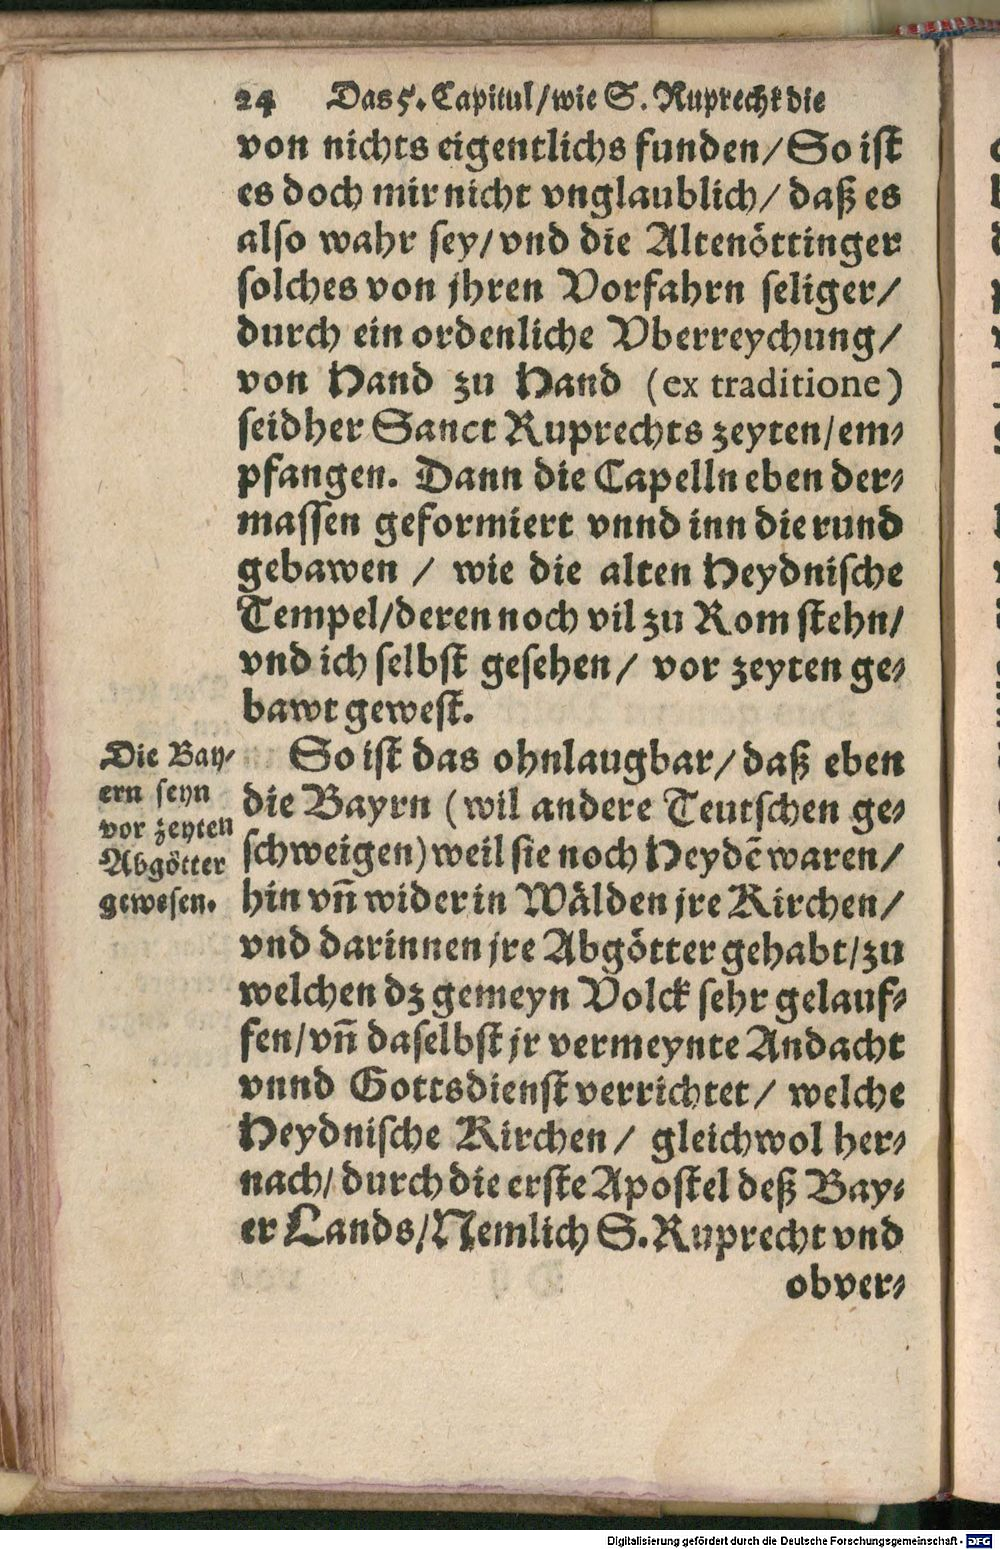 24 Das 5. Capitul/wie S. Ruprecht die
von nichts eigentlichs funden/So ist
es doch mir nicht vnglaublich/ daß es
also wahr sey/vnd die Altenöttinger
solches von jhren Vorfahrn seliger/
durch ein ordenliche Vberreychung/
von Hand zu Hand (ex traditione)
seidher Sanct Ruprechts zeyten/em-
pfangen. Dann die Capelln eben der-
massen geformiert vnnd inn die rund
gebawen / wie die alten Heydnische
Tempel/deren noch vil zu Rom stehn/
vnd ich selbst gesehen/ vor zeyten ge-
bawt gewest.
Die Bay-
ern seyn
vor zeyten
Abgötter
gewesen.
So ist das ohnlaugbar/daß eben
die Bayrn (wil andere Teutschen ge-
schweigen) weil sie noch Heydẽ waren/
hin vñ wider in Wälden jre Kirchen/
vnd darinnen jre Abgötter gehabt/zu
welchen dz gemeyn Volck sehr gelauf-
fen/vñ daselbst jr vermeynte Andacht
vnnd Gottsdienst verrichtet/ welche
Heydnische Kirchen/ gleichwol her-
nach/durch die erste Apostel deß Bay-
er Lands/Nemlich S. Ruprecht vnd
obver-
Digitalisierung gefördert durch die Deutsche Forschungsgemeinschaft - DFG